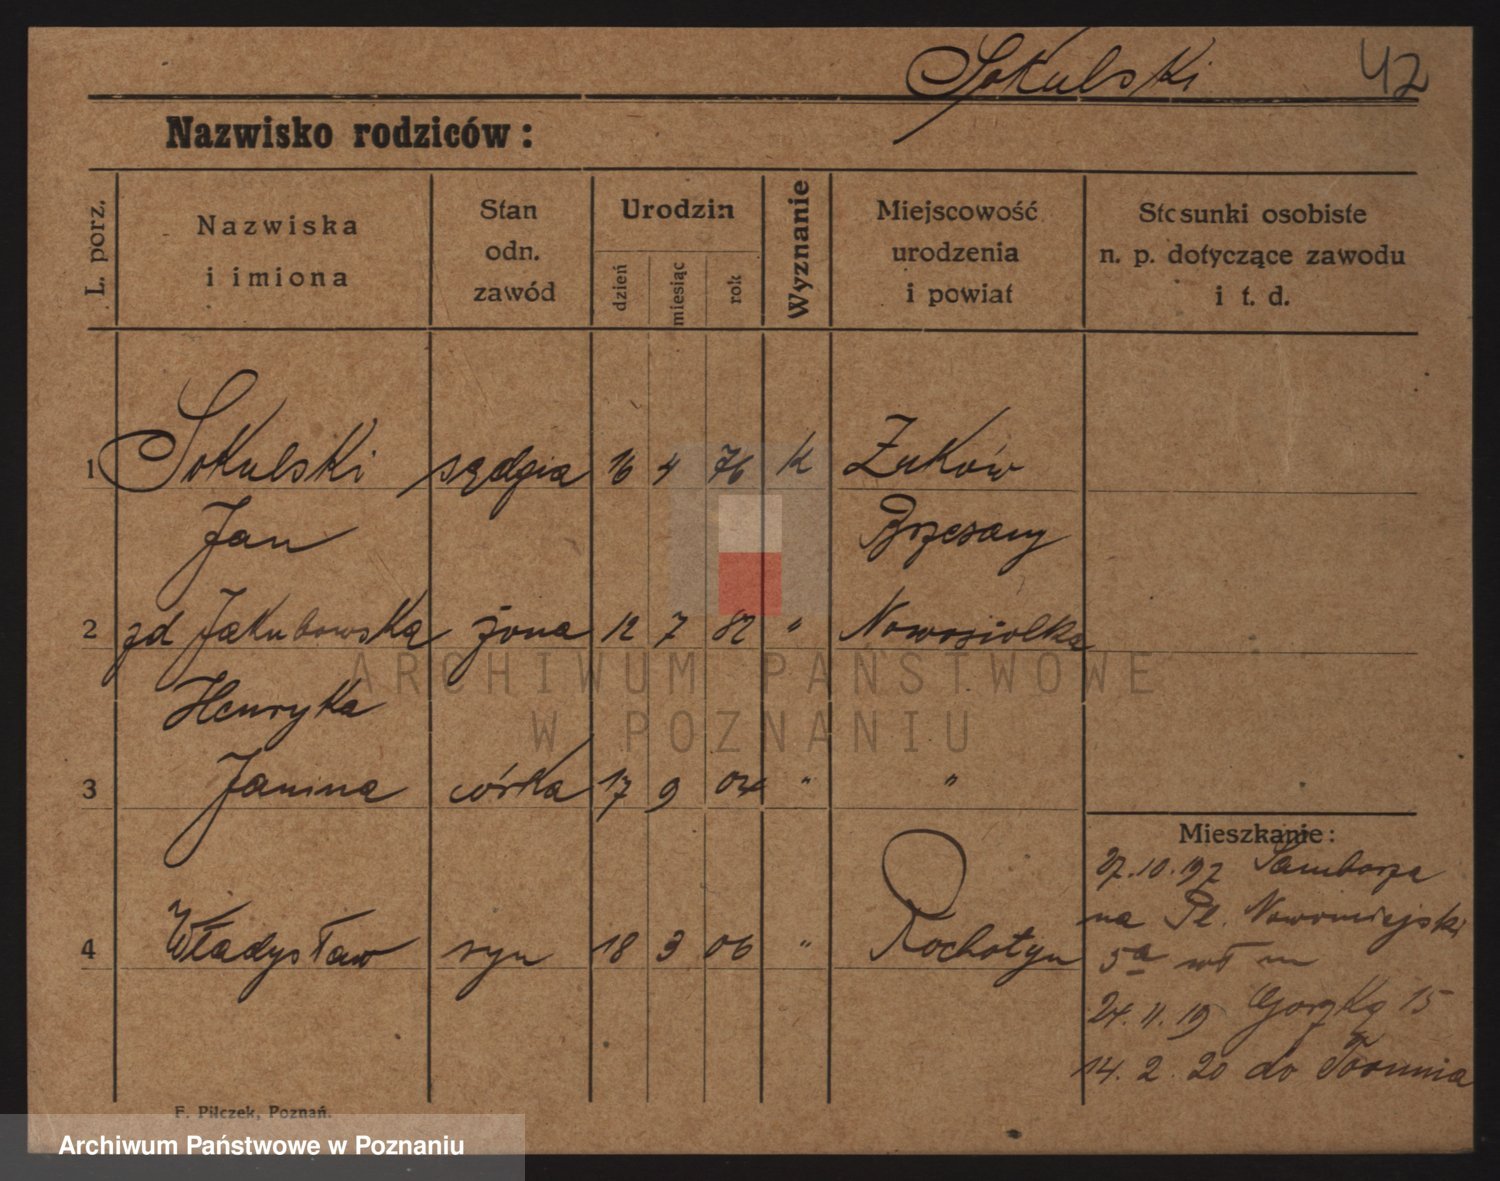 Sokulski 42
Nazwisko rodziców:
L. porz.
Nazwiska
i imiona
Stan
odn.
zawód
Urodzin
dzień
miesiąc
rok
Wyznanie
Miejscowość
urodzenia
i powiat
Stosunki osobiste
n. p. dotyczące zawodu
i t. d.
1 Sokulski sędzia 16 4 76 k Zuków
Jan Brzezany
2 zd Jakubowska żona 12 7 82 " Nowosiolka
Henryka
3 Janina córka 17 9 04 " "
Mieszkanie:
27.10.192 Samborza
na Pl. Nowomiejski
4 Władysław syn 18 3 06 " Rochotyn
5a wł m
24.11.19 Gorzka 15
14.2.20 do Torunia
F. Pilczek, Poznań.
ARCHIWUM PAŃSTWOWE
W POZNANIU
Archiwum Państwowe w Poznaniu